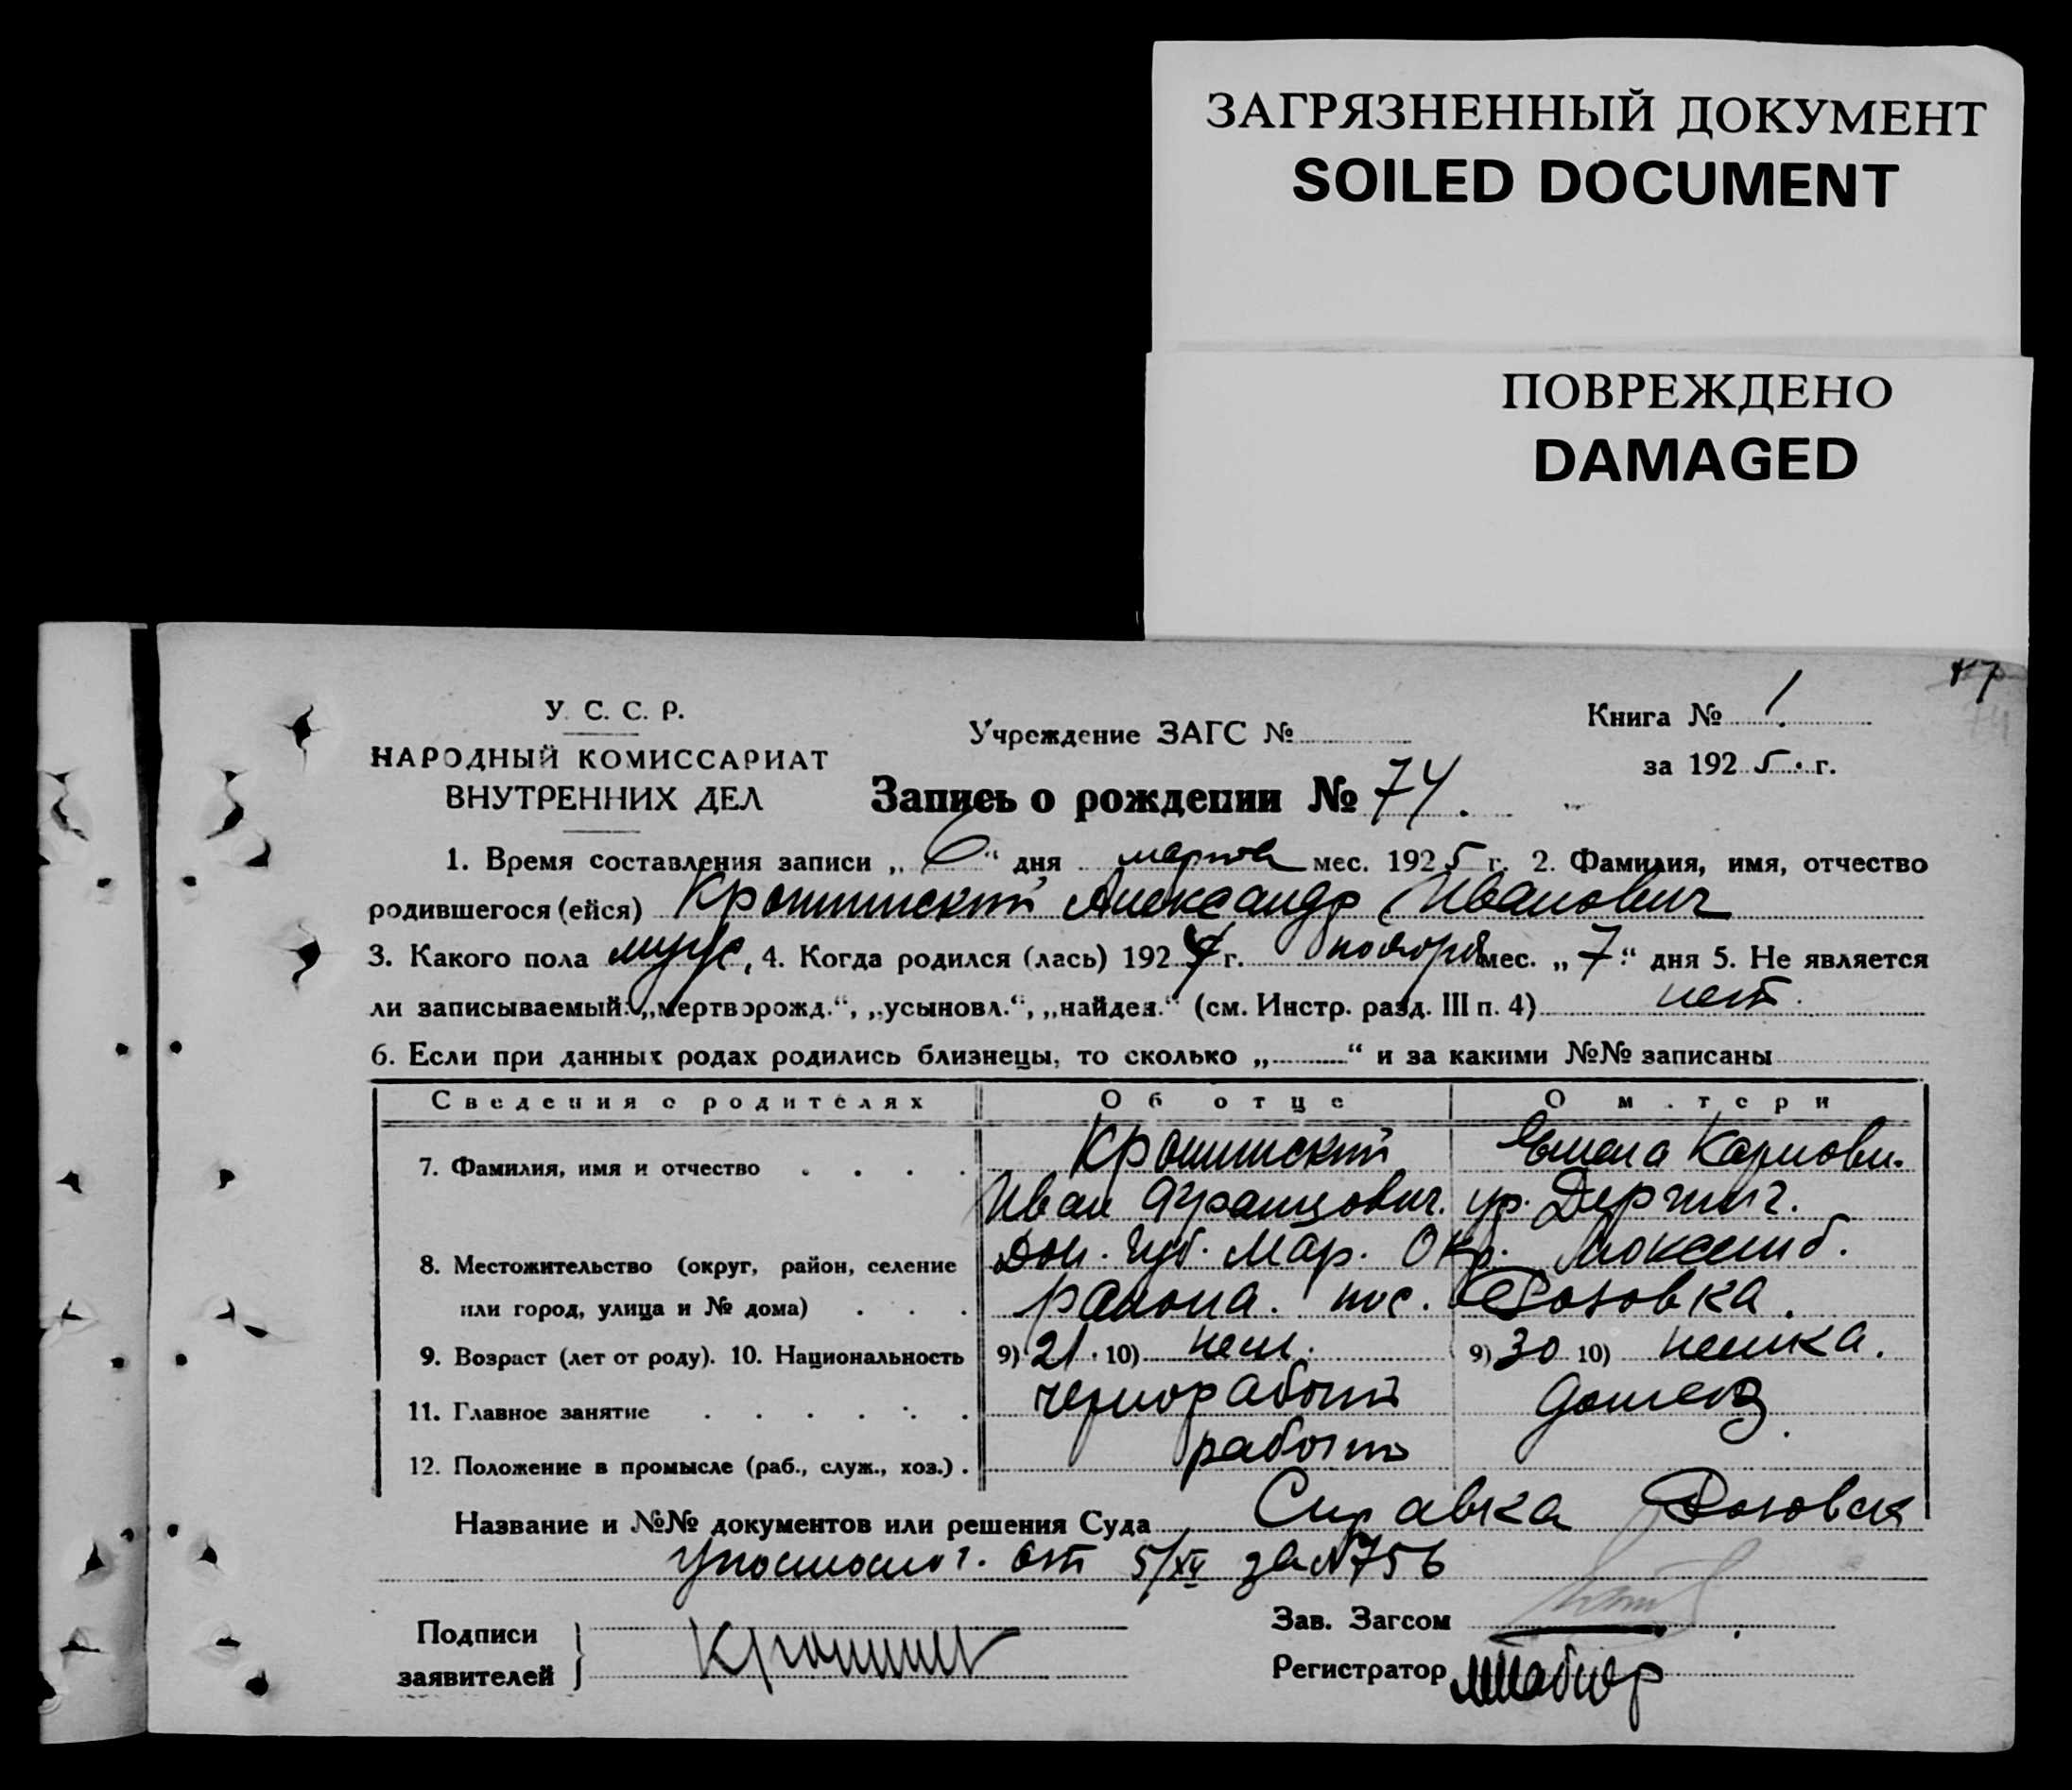 ЗАГРЯЗНЕННЫЙ ДОКУМЕНТ
SOILED DOCUMENT
ПОВРЕЖДЕНО
DAMAGED
У. С. С. Р.
НАРОДНЫЙ КОМИССАРИАТ
ВНУТРЕННИХ ДЕЛ
Учреждение ЗАГС №
Книга № 1.
за 1925 г.
Запись о рождении № 74.
1. Время составления записи „6“ дня марта мес. 1925 г. 2. Фамилия, имя, отчество
родившегося (ейся) Александр Иванович
3. Какого пола муж, 4. Когда родился (лась) 1924 г. ноября мес. „7“ дня 5. Не является
ли записываемый: „мертворожд.“, „усыновл.“, „найден.“ (см. Инстр. разд. III п. 4) нет.
6. Если при данных родах родились близнецы, то сколько „ “ и за какими №№ записаны
Сведения о родителях Об отце О матери
7. Фамилия, имя и отчество
Иван Францович. ур.
8. Местожительство (округ, район, селение Дон. Губ. Мар. Окр.
или город, улица и № дома) района. пос. Розовка.
9. Возраст (лет от роду). 10. Национальность 9) 21. 10) нем. 9) 30 10) немка.
11. Главное занятие чернорабоч домохоз.
12. Положение в промысле (раб., служ., хоз.)
Название и №№ документов или решения Суда Справка Розовск
от 5/XII за № 756
Подписи
заявителей
Зав. Загсом
Регистратор